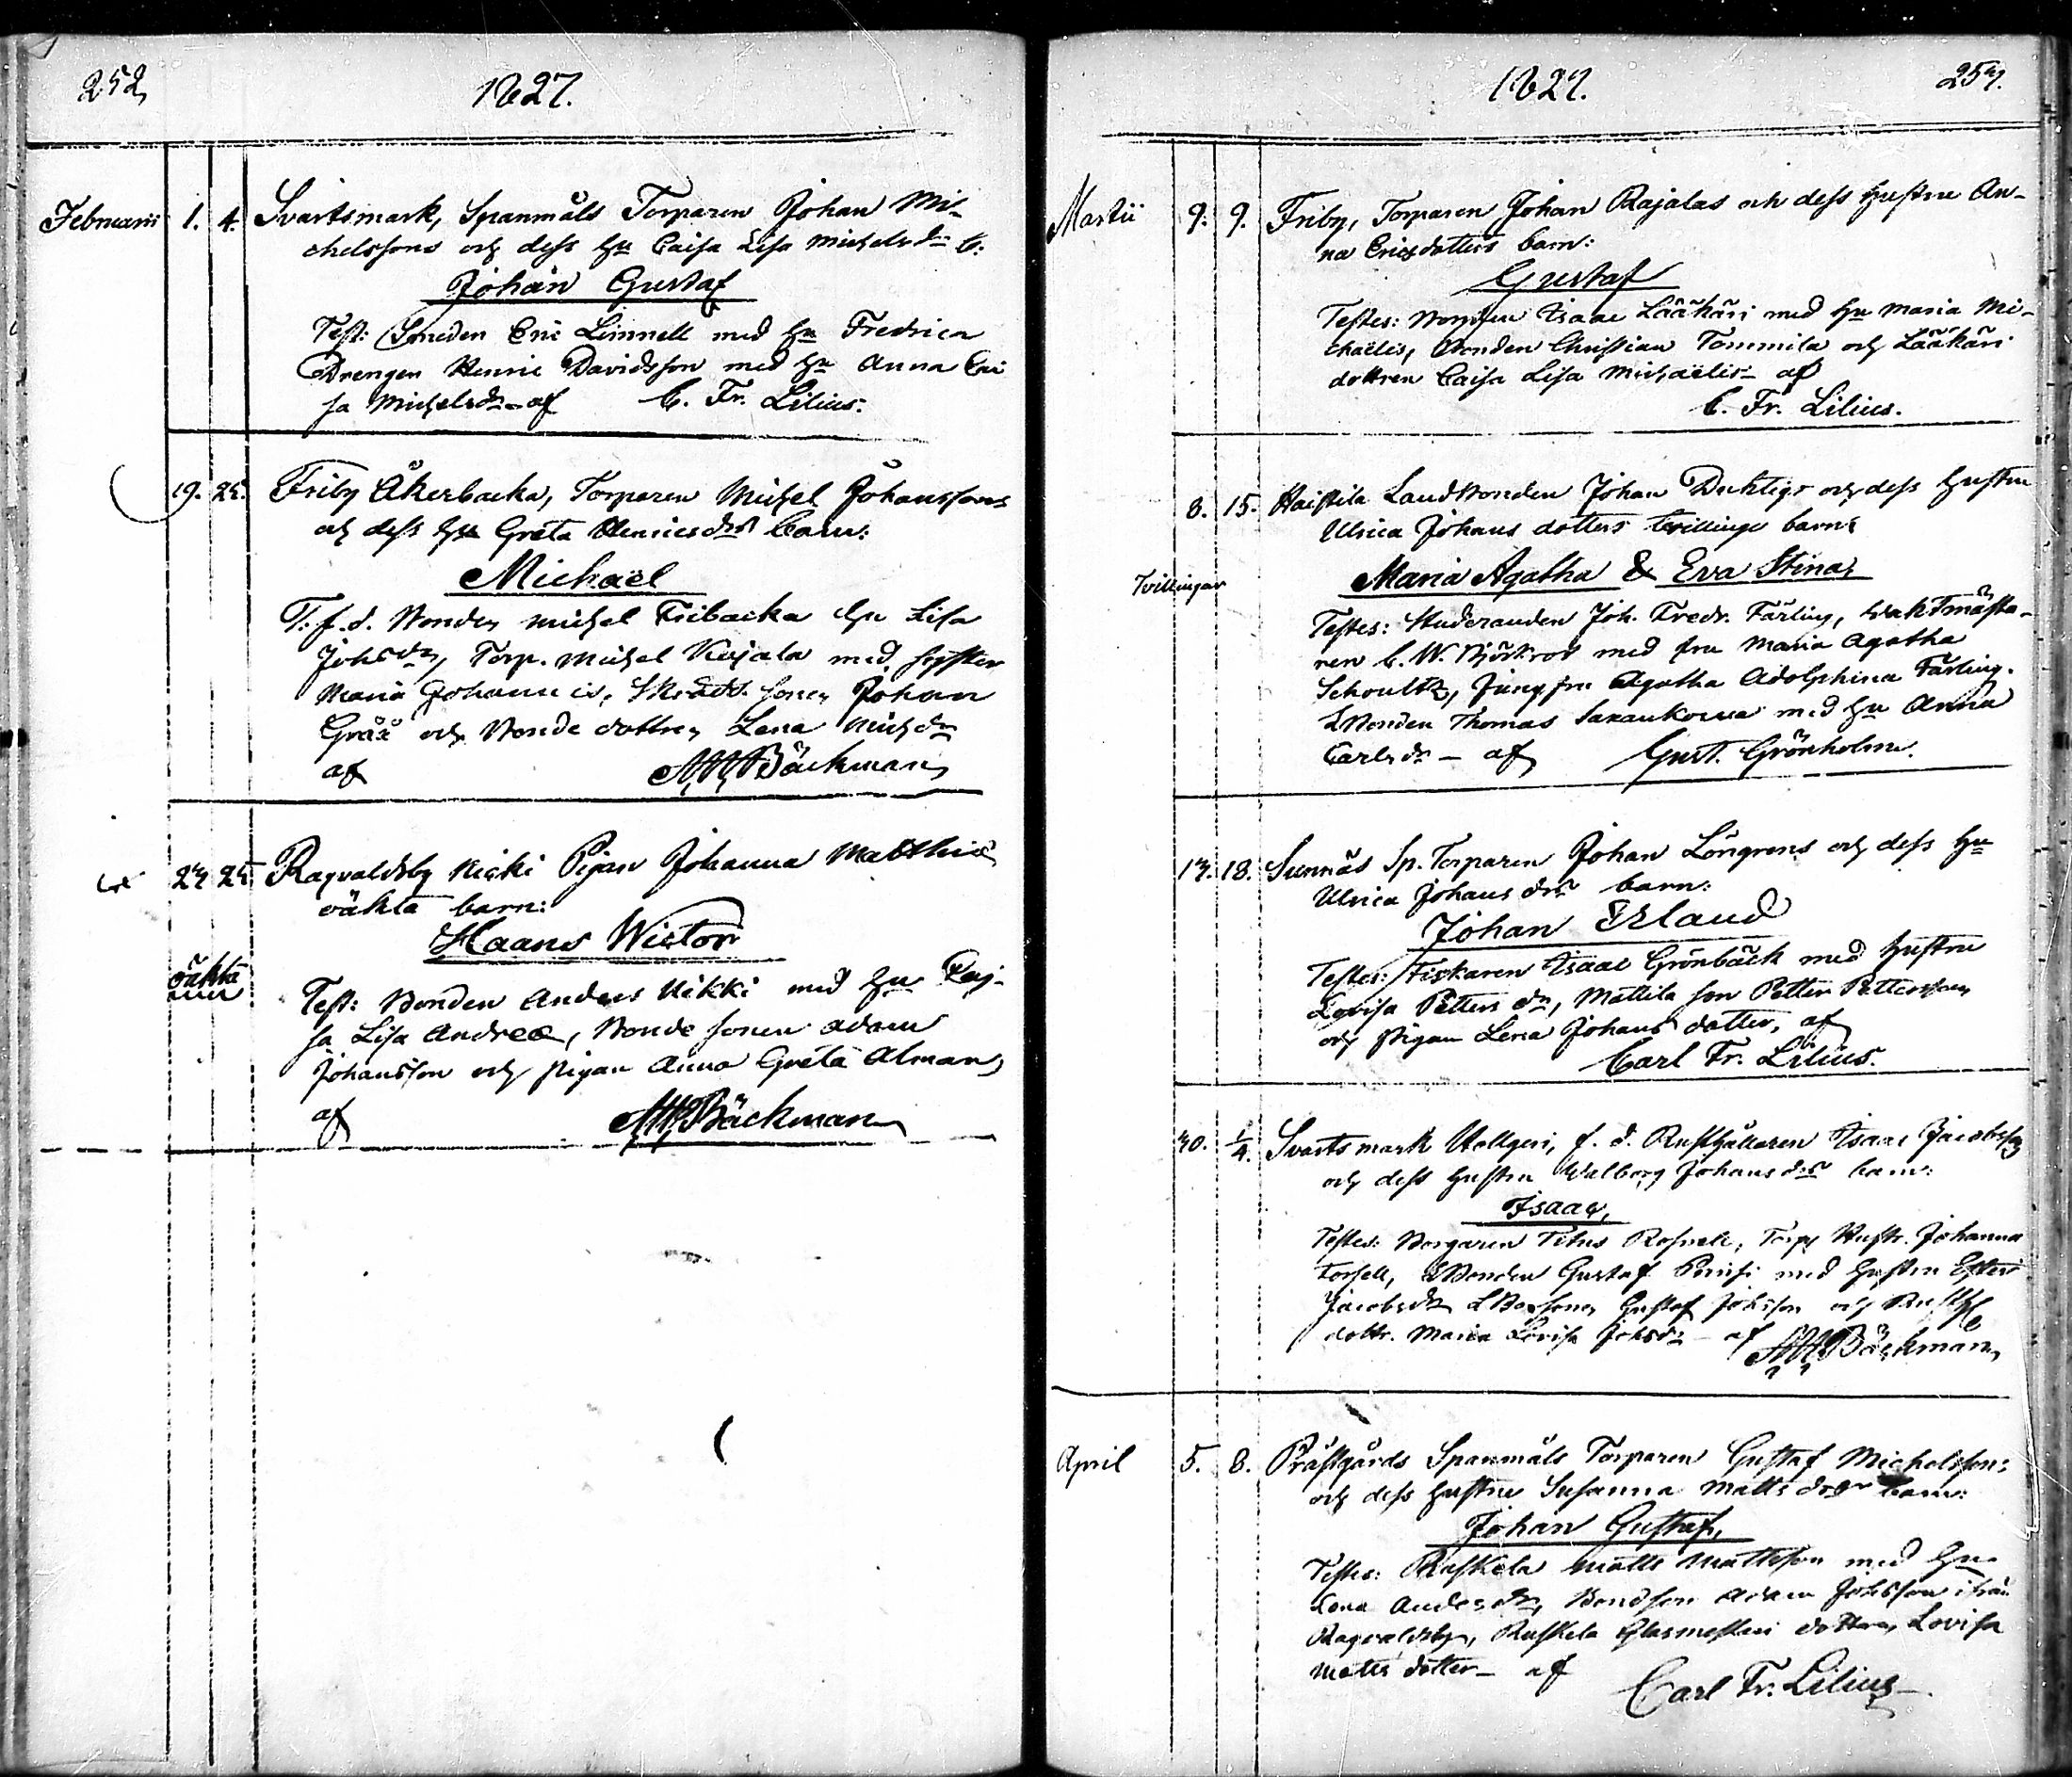 252
1827.
Februarii 1. 4. Svartsmark, Spanmåls Torparen Johan Mi-
chelssons och dess hu Caisa Lisa Michelsdr b:
Johan Gustaf
Test: Smeden Eric Limnell med hu Fredrica
Drengen Henric Davidsson med hu Anna Cai
sa Michelsdr - af C. Fr. Lilius.
19. 25. Friby Åkerbacka, Torparen Michel Johanssons
och dess hu Greta Henricsdrs barn:
Michaël
T: f. d. Bonden Michel Fribacka hu Lisa
Johsdr, Torp. Michel Kujala med syster
Maria Johannis, sonen Johan
Gråå och Bonde dottren Lena Michdr
af Bäckman
23 25. Ragvaldsby Nicki Pigan Johanna Matthiæ
oäkta barn:
Haans Wictor
oäkta
Test: Bonden Anders Nikki med hu Caj-
sa Lisa Andreæ, Bonde sonen Adam
Johansson och pigan Anna Greta Alman
af Bäckman
1827.
253.
Martii 9. 9. Friby, Torparen Johan Rajalas och dess hustru An-
na Ericsdotters barn:
Gustaf
Testes: Isaac Lääkäri med hu Maria Mi-
chaëlis, Bonden Christian Tommila och Lääkäri
dottren Caisa Lisa Michaëlis - af
C. Fr. Lilius.
8. 15. Haistila Landbonden Johan Duktigs och dess hustru
Ulrica Johans dotters tvillinge barn:
Tvillingar
Maria Agatha & Eva Stina,
Testes: Studeranden Joh. Fredr. Färling, Waktmästa-
ren C. W. Björkroos med fru Maria Agatha
Schoultz, Jungfru Agatha Adolphina Färling.
LBonden Thomas Saxankoura med hu Anna
Carlsdr - af Gust. Grönholm.
13. 18. Sunnäs Sp. Torparen Johan Löngrens och dess hu
Ulrica Johans drs barn:
Johan Erland
Testes: Fiskaren Isaac Grönbäck med hustru
Lovisa Petters dr, Mattila son Petter Pettersson
och Pigan Lena Johans dotter, af
Carl Fr. Lilius.
30. 1/4. Svartsmark Hollgeri, f. d. Rusthållaren Isaac Jacobsson
och dess hustru Walborg Johans drs barn:
Isaac,
Testes: Borgaren Titus Rosnell, Hustr. Johanna
Forsell, LBonden Gustaf med hustru Ester
Jacobsdr LBosonen Gustaf Johsson och Rusth
dottr. Maria Lovisa Johsdr - af Bäckman
April 5. 8. Prästgårds Spanmåls Torparen Gustaf Michelssons
och dess hustru Susanna Matts drs barn:
Johan Gustaf,
Testes: Ruskela Matts Mattsson med hu
Lena Andersdr, Bondson Adam Johsson ifrån
Ragvaldsby, Ruskela Glasmestari dottren Lovisa
Matts dotter - af Carl Fr. Lilius